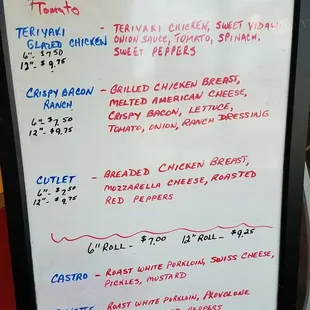 Tomato
TERIYAKI - TERIYAKI CHICKEN, SWEET VIDALI
GLAZED CHICKEN ONION SAUCE, TOMATO, SPINACH,
6" - $7.50 SWEET PEPPERS
12" - $9.75
CRISPY BACON - GRILLED CHICKEN BREAST,
RANCH MELTED AMERICAN CHEESE,
6" - $7.50 CRISPY BACON, LETTUCE,
12" - $9.75 TOMATO, ONION, RANCH DRESSING
CUTLET - BREADED CHICKEN BREAST,
6" - $7.50 MOZZARELLA CHEESE, ROASTED
12" - $9.75 RED PEPPERS
6" ROLL - $7.00 12" ROLL - $9.25
CASTRO - ROAST WHITE PORKLOIN, SWISS CHEESE,
PICKLES, MUSTARD
ROAST WHITE PORKLOIN, PROVOLONE
PEPPERS